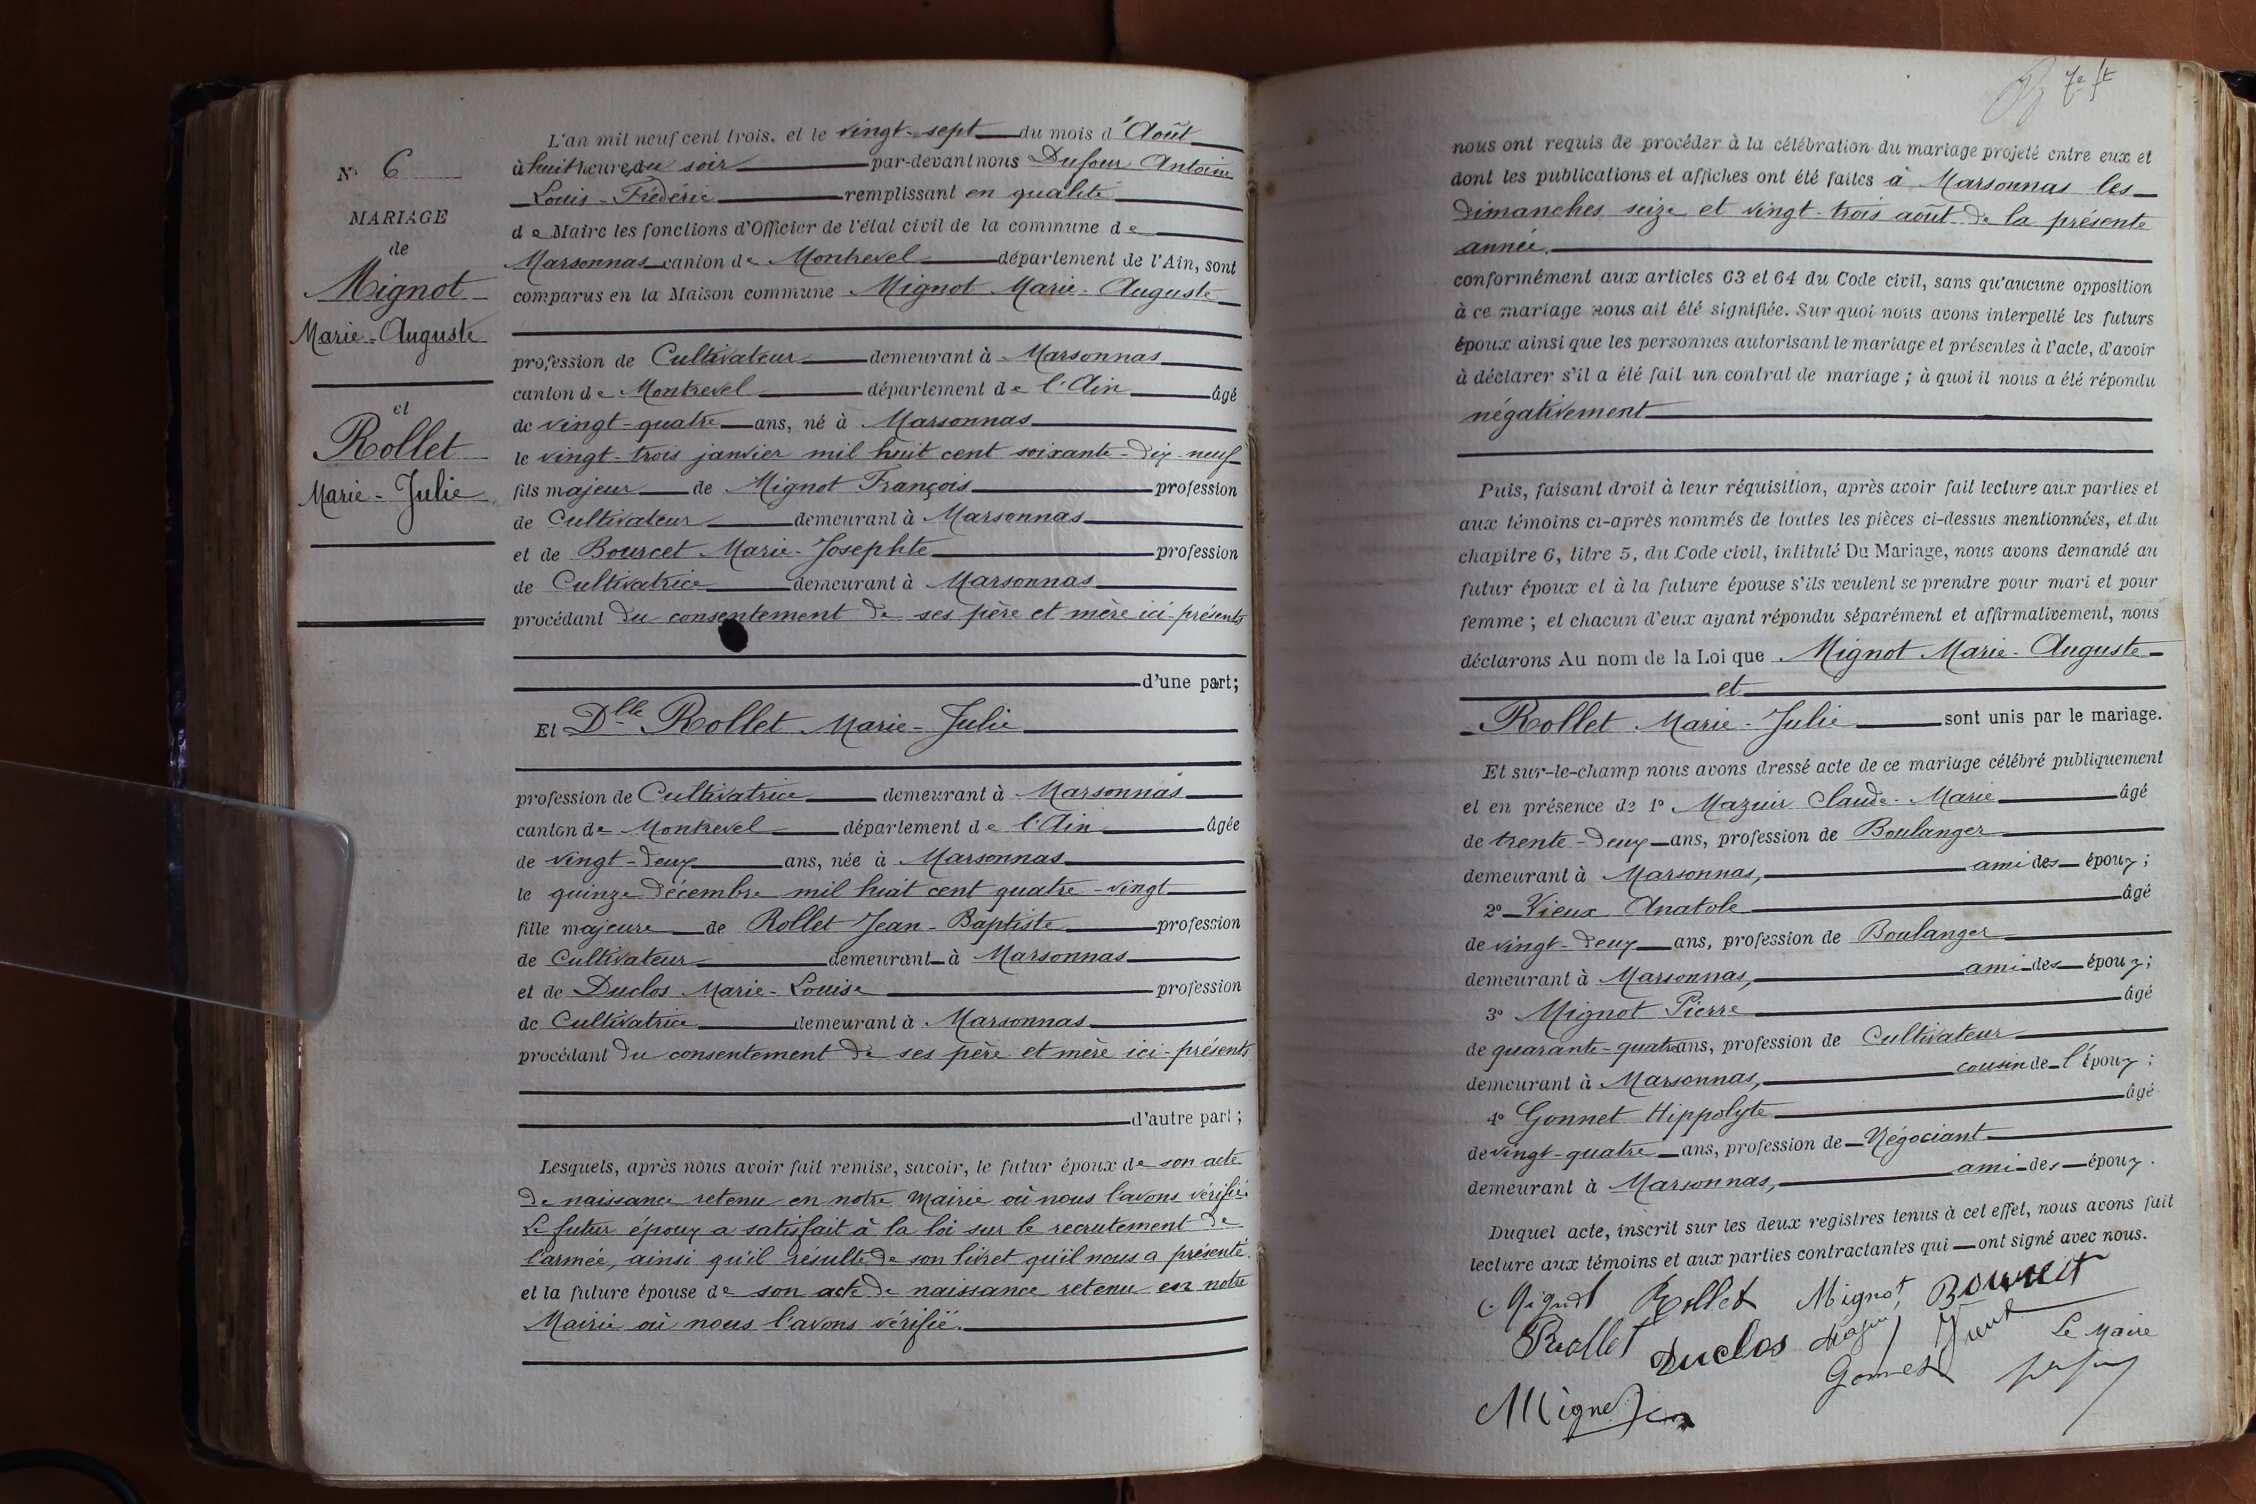 N° 6
MARIAGE
de
Mignot
Marie-Auguste
et
Rollet
Marie-Julie
L'an mil neuf cent trois, et le vingt-sept du mois d'Août
à huit heure du soir par-devant nous Dufour Antoine
Louis-Frédéric remplissant en qualité
de Maire les fonctions d'Officier de l'état civil de la commune de
Marsonnas canton de Montrevel département de l'Ain, sont
comparus en la Maison commune Mignot Marie-Auguste
profession de Cultivateur demeurant à Marsonnas
canton de Montrevel département de l'Ain âgé
de vingt-quatre ans, né à Marsonnas
le vingt-trois janvier mil huit cent soixante-dix-neuf
fils majeur de Mignot François profession
de Cultivateur demeurant à Marsonnas
et de Bourcet Marie-Josephte profession
de Cultivatrice demeurant à Marsonnas
procédant du consentement de ses père et mère ici-présents
d'une part;
Et Dlle Rollet Marie-Julie
profession de Cultivatrice demeurant à Marsonnas
canton de Montrevel département de l'Ain âgée
de vingt-deux ans, née à Marsonnas
le quinze décembre mil huit cent quatre-vingt
fille majeure de Rollet Jean-Baptiste profession
de Cultivateur demeurant à Marsonnas
et de Duclos Marie-Louise profession
de Cultivatrice demeurant à Marsonnas
procédant du consentement de ses père et mère ici-présents
d'autre part;
Lesquels, après nous avoir fait remise, savoir, le futur époux de son acte
de naissance retenu en notre Mairie où nous l'avons vérifié.
Le futur époux a satisfait à la loi sur le recrutement de
l'armée, ainsi qu'il résulte de son livret qu'il nous a présenté.
et la future épouse de son acte de naissance retenu en notre
Mairie où nous l'avons vérifié.
nous ont requis de procéder à la célébration du mariage projeté entre eux et
dont les publications et affiches ont été faites à Marsonnas les
dimanches seize et vingt-trois août de la présente
année.
conformément aux articles 63 et 64 du Code civil, sans qu'aucune opposition
à ce mariage nous ait été signifiée. Sur quoi nous avons interpellé les futurs
époux ainsi que les personnes autorisant le mariage et présentes à l'acte, d'avoir
à déclarer s'il a été fait un contrat de mariage; à quoi il nous a été répondu
négativement
Puis, faisant droit à leur réquisition, après avoir fait lecture aux parties et
aux témoins ci-après nommés de toutes les pièces ci-dessus mentionnées, et du
chapitre 6, titre 5, du Code civil, intitulé Du Mariage, nous avons demandé au
futur époux et à la future épouse s'ils veulent se prendre pour mari et pour
femme; et chacun d'eux ayant répondu séparément et affirmativement, nous
déclarons Au nom de la Loi que Mignot Marie-Auguste
et
Rollet Marie-Julie sont unis par le mariage.
Et sur-le-champ nous avons dressé acte de ce mariage célébré publiquement
et en présence de 1° Mazuir Claude-Marie âgé
de trente-deux ans, profession de Boulanger
demeurant à Marsonnas, ami des époux;
2° Vieux Anatole âgé
de vingt-deux ans, profession de Boulanger
demeurant à Marsonnas, ami des époux;
3° Mignot Pierre âgé
de quarante-quatre ans, profession de Cultivateur
demeurant à Marsonnas, cousin de l'époux;
4° Gonnet Hippolyte âgé
de vingt-quatre ans, profession de Négociant
demeurant à Marsonnas, ami des époux.
Duquel acte, inscrit sur les deux registres tenus à cet effet, nous avons fait
lecture aux témoins et aux parties contractantes qui ont signé avec nous.
Mignot Rollet Mignot Bourcet
Rollet Duclos Le Maire
Gonnet
Mignot